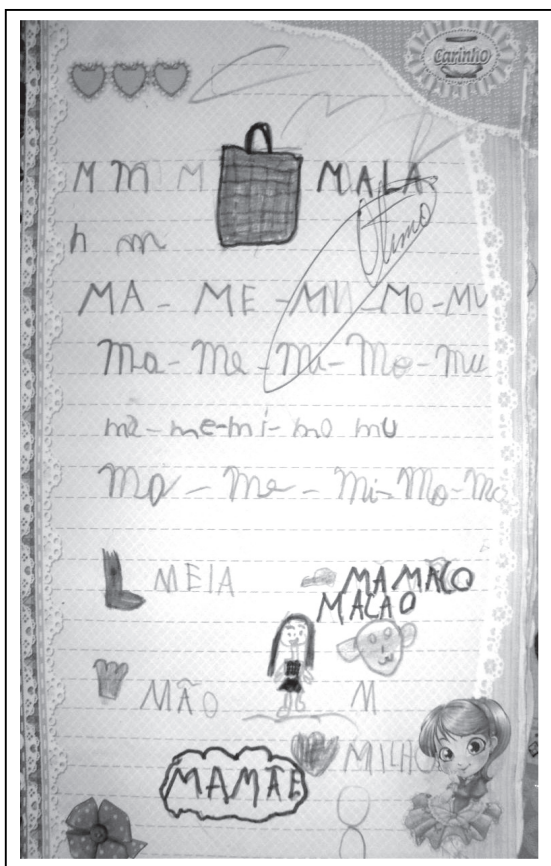 Carinho
M m M MALA
Ótimo
n m
MA - ME - MI - MO - MU
Ma - Me - Mi - Mo - Mu
ma - me - mi - mo mu
Ma - Me - Mi - Mo - Mu
MEIA MAMÃO
MACACO
MÃO M
MILHO
MAMÃE